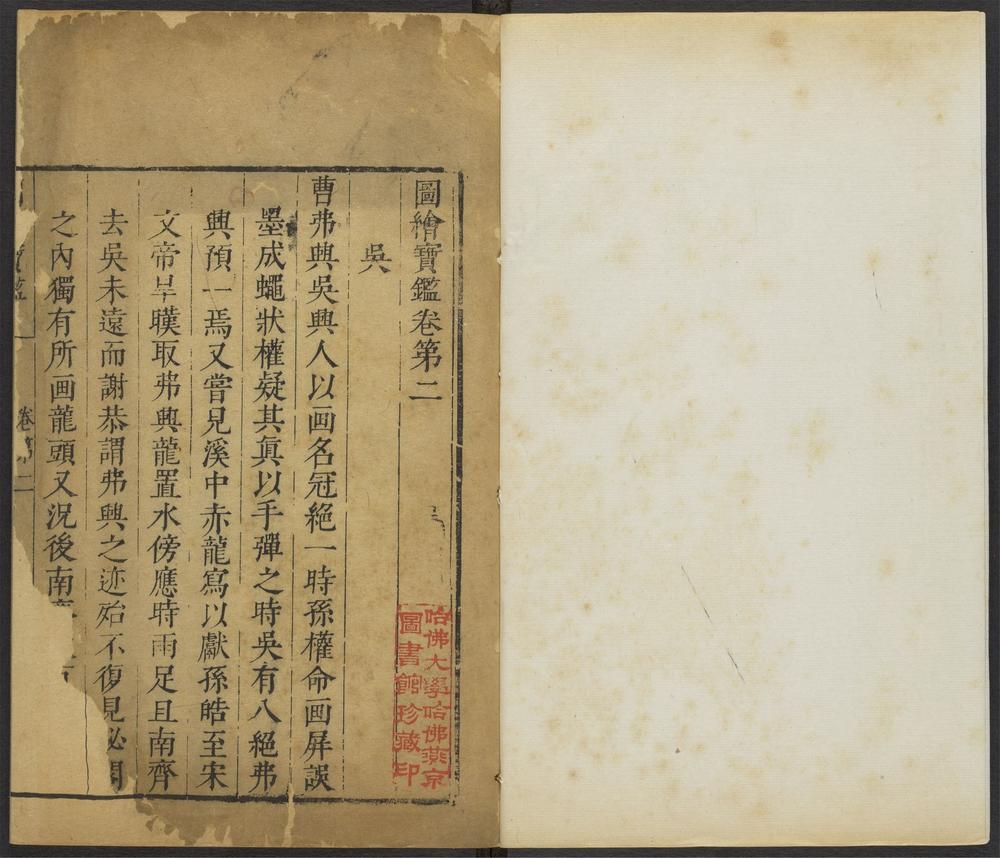 圖繪寶鑑卷第二
吳
曹弗興吳興人以画名冠絕一時孫權命画屏誤
墨成蠅狀權疑其真以手彈之時吳有八絕弗
興預一焉又嘗見溪中赤龍寫以獻孫皓至宋
文帝旱暵取弗興龍置水傍應時雨足且南齊
去吳未遠而謝恭謂弗興之迹殆不復見必閣
之內獨有所画龍頭又況後南齊
卷第二
哈佛大學哈佛燕京
圖書館珍藏印